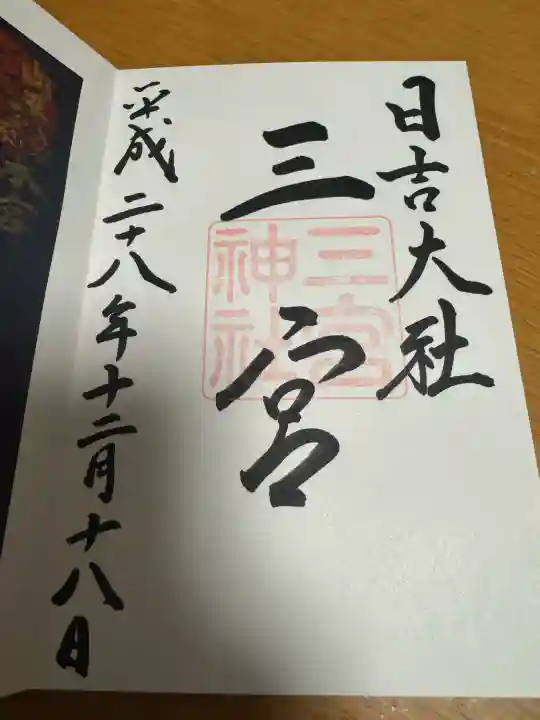 日吉大社
三宮
三宮神社
平成二十八年十二月十八日